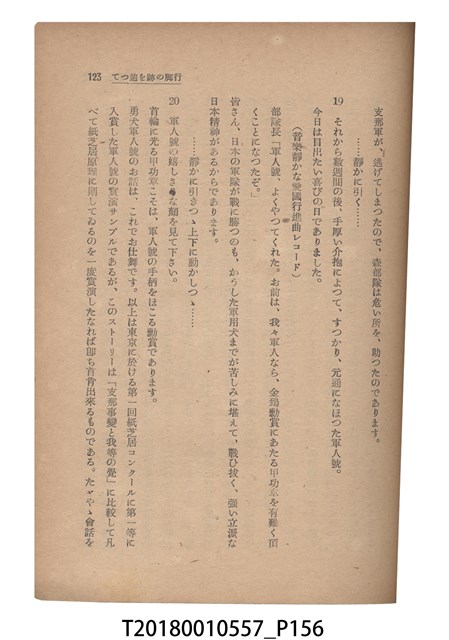 行脚の跡を追つて 123
支那軍が、逃げてしまつたので、森部隊は危い所を、助つたのであります。
……静かに引く……
19 それから数週間の後、手厚い介抱によつて、すつかり、元通になほつた軍人號。
今日は目出たい喜びの日でありました。
(音楽静かな愛國行進曲レコード)
部隊長「軍人號、よくやつてくれた。お前は、我々軍人なら、金鵄勲賞にあたる甲功章を有難く頂
くことになつたぞ。
皆さん、日本の軍隊が戦に勝つのも、かうした軍用犬までが苦しみに堪えて、戦ひ抜く、強い立派な
日本精神があるからであります。
……静かに引きつゝ上下に動かしつゝ……
20 軍人號の嬉しさうな顔を見て下さい。
首輪に光る甲功章こそは、軍人號の手柄をほこる勲賞であります。
勇犬軍人號のお話は、これでお仕舞です。以上は東京に於ける第一回紙芝居コンクールに第一等に
入賞した軍人號の實演サンプルであるが、このストーリーは「支那事變と我等の覺」に比較して凡
べて紙芝居原理に則してゐるのを一度實演したなれば即ち首肯出來るものである。たゞやゝ會話を
T20180010557_P156